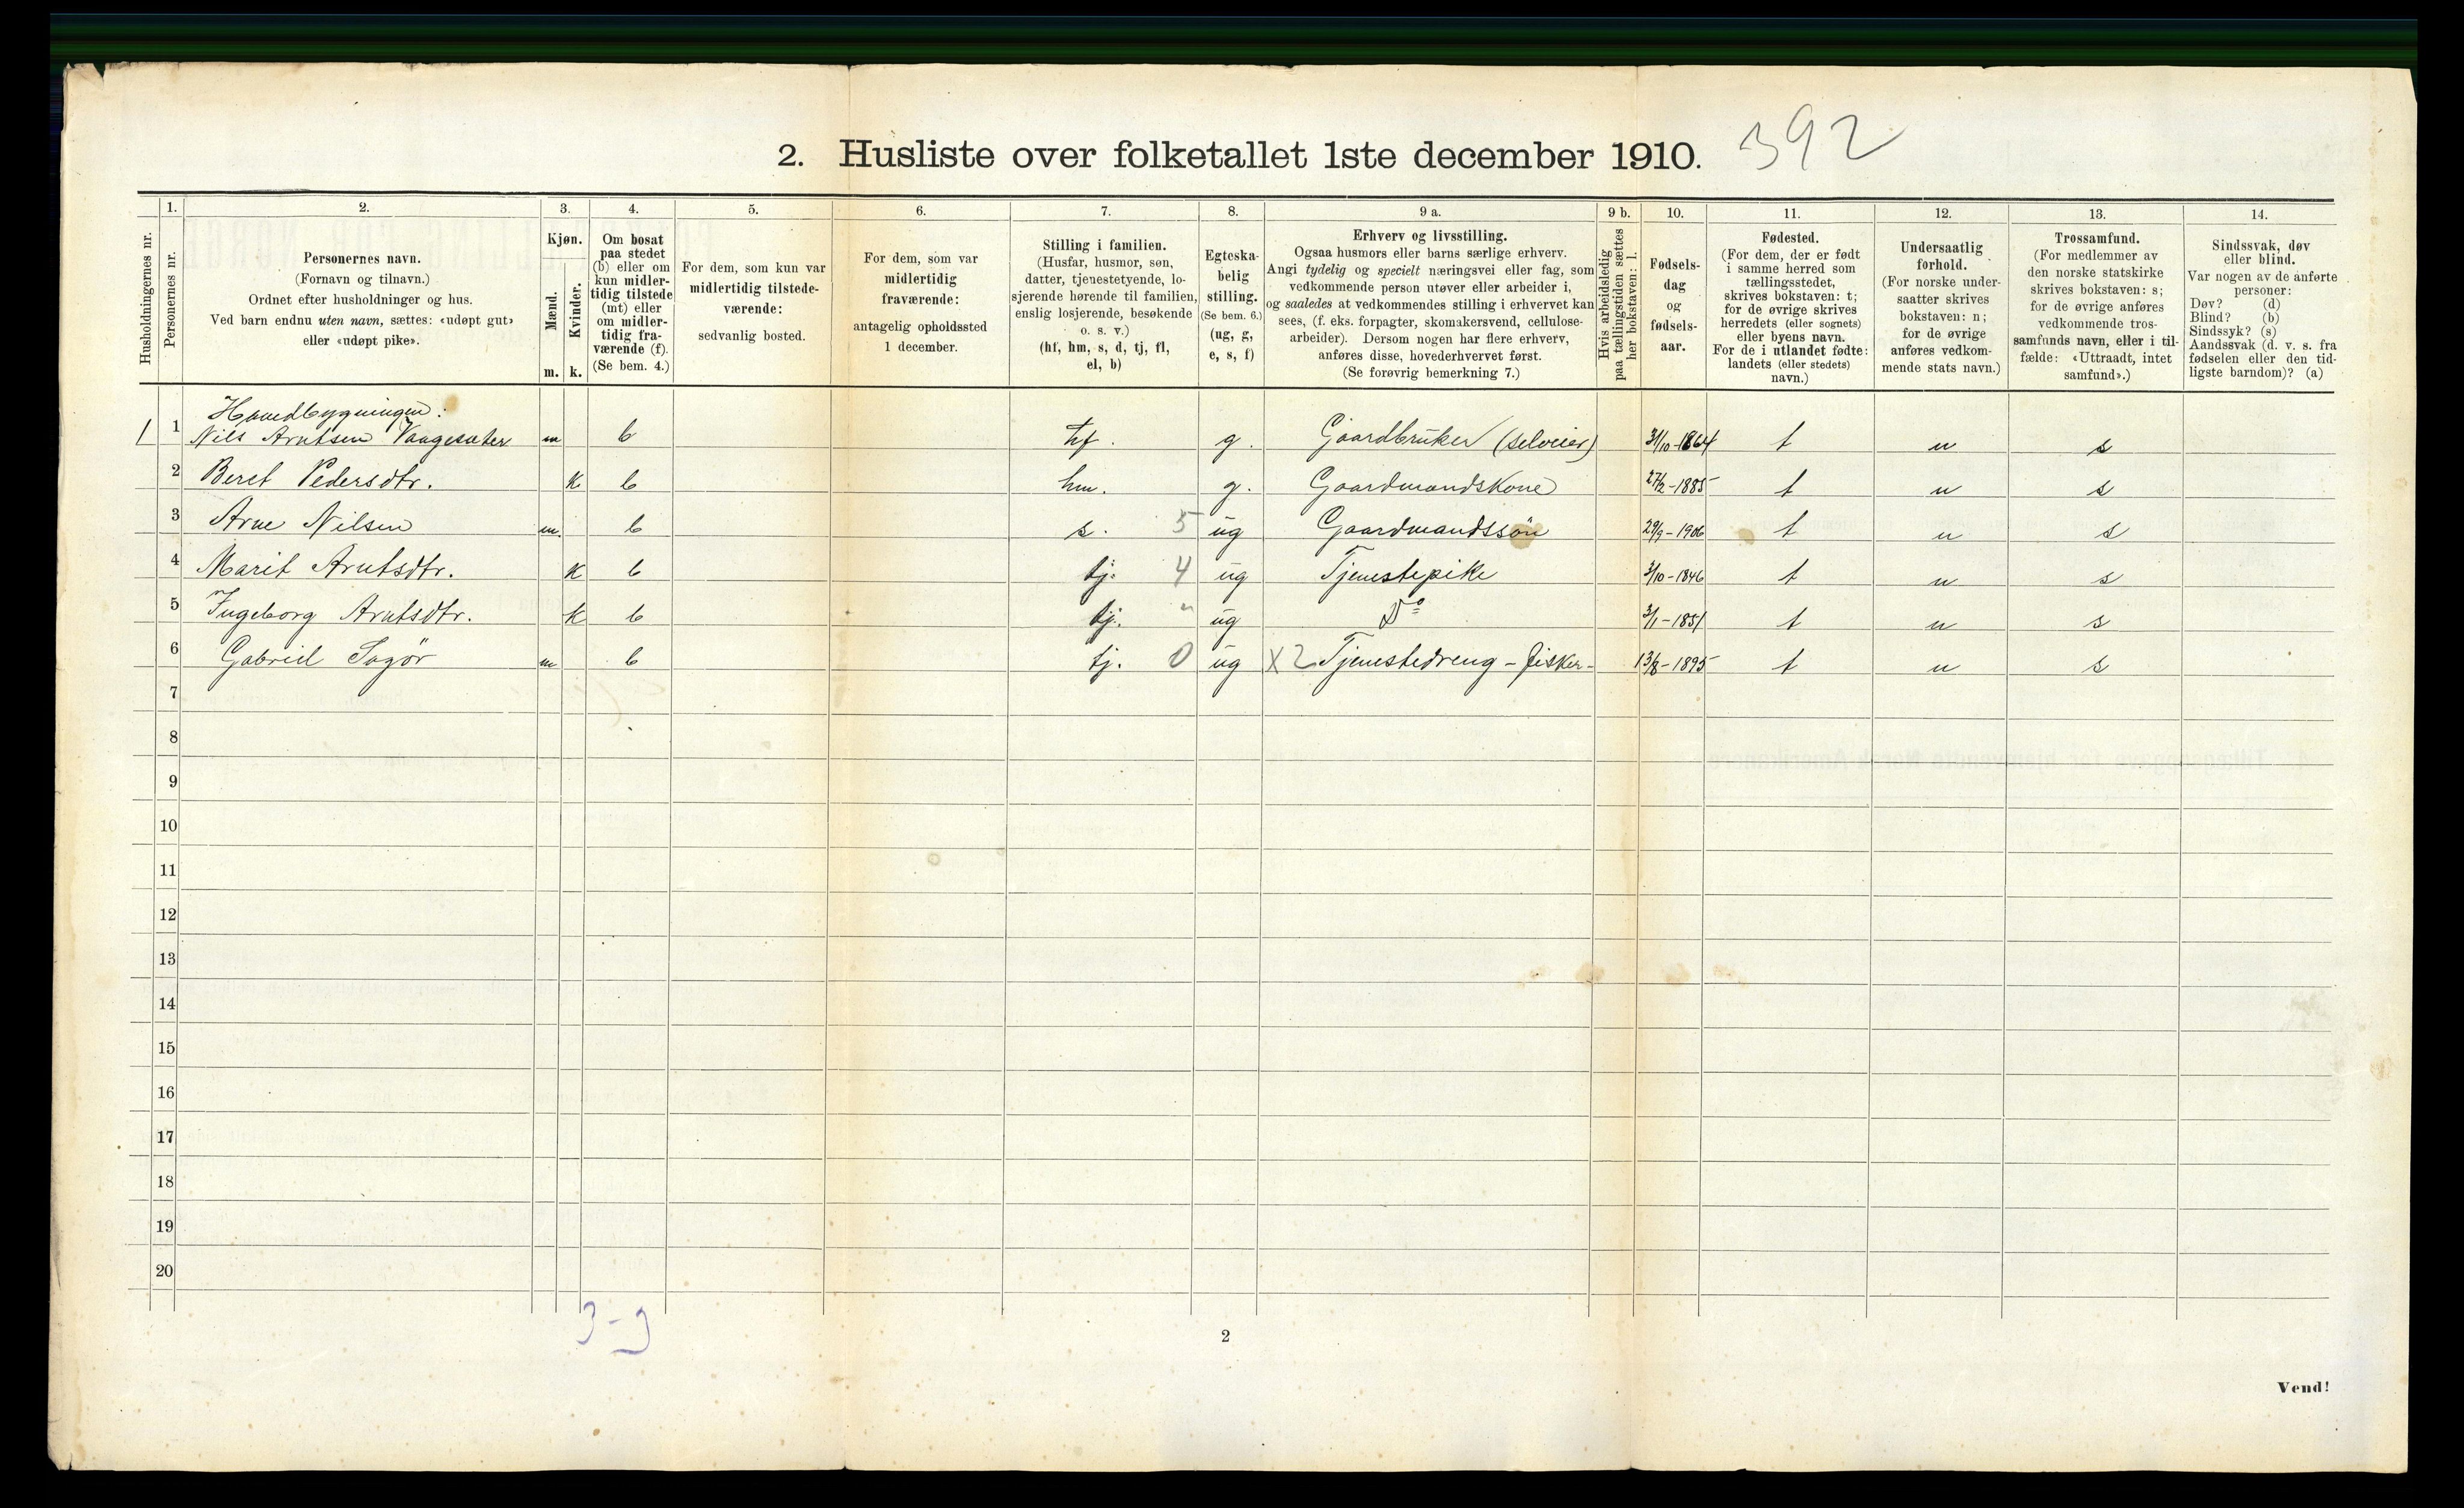 2. Husliste over folketallet 1ste december 1910. 392
Husholdningernes nr.
1.
Personernes nr.
2.
Personernes navn.
(Fornavn og tilnavn.)
Ordnet efter husholdninger og hus.
Ved barn endnu uten navn, sættes: «udøpt gut»
eller «udøpt pike».
3.
Kjøn.
Mænd.
Kvinder.
m. k.
4.
Om bosat
paa stedet
(b) eller om
kun midler-
tidig tilstede
(mt) eller
om midler-
tidig fra-
værende (f).
(Se bem. 4.)
5.
For dem, som kun var
midlertidig tilstede-
værende:
sedvanlig bosted.
6.
For dem, som var
midlertidig
fraværende:
antagelig opholdssted
1 december.
7.
Stilling i familien.
(Husfar, husmor, søn,
datter, tjenestetyende, lo-
sjerende hørende til familien,
enslig losjerende, besøkende
o. s. v.)
(hf, hm, s, d, tj, fl,
el, b)
8.
Egteska-
belig
stilling.
(Se bem. 6.)
(ug, g,
e, s, f)
9 a.
Erhverv og livsstilling.
Ogsaa husmors eller barns særlige erhverv.
Angi tydelig og specielt næringsvei eller fag, som
vedkommende person utøver eller arbeider i,
og saaledes at vedkommendes stilling i erhvervet kan
sees, (f. eks. forpagter, skomakersvend, cellulose-
arbeider). Dersom nogen har flere erhverv,
anføres disse, hovederhvervet først.
(Se forøvrig bemerkning 7.)
9 b.
Hvis arbeidsledig
paa tællingstiden sættes
her bokstaven: l.
10.
Fødsels-
dag
og
fødsels-
aar.
11.
Fødested.
(For dem, der er født
i samme herred som
tællingsstedet,
skrives bokstaven: t;
for de øvrige skrives
herredets (eller sognets)
eller byens navn.
For de i utlandet fødte:
landets (eller stedets)
navn.)
12.
Undersaatlig
forhold.
(For norske under-
saatter skrives
bokstaven: n;
for de øvrige
anføres vedkom-
mende stats navn.)
13.
Trossamfund.
(For medlemmer av
den norske statskirke
skrives bokstaven: s;
for de øvrige anføres
vedkommende tros-
samfunds navn, eller i til-
fælde: «Uttraadt, intet
samfund».)
14.
Sindssvak, døv
eller blind.
Var nogen av de anførte
personer:
Døv? (d)
Blind? (b)
Sindssyk? (s)
Aandssvak (d. v. s. fra
fødselen eller den tid-
ligste barndom)? (a)
Hovedbygningen:
1 1 Nils Arntsen Vaagesæter m b hf. g. Gaardbruker (selveier) 31/10-1864 t n s
2 Beret Pedersdtr. K b hm. g. Gaardmandskone 27/2-1885 t n s
3 Arne Nilsen m. b s. 5 ug Gaardmandssön 29/9-1906 t n s
4 Marit Arntsdtr. K b tj. 4 ug Tjenestepike 3/10-1846 t n s
5 Ingeborg Arntsdtr. K b tj. " ug Do 3/1-1851 t n s
6 Gabriel Sagör m b tj. 0 ug X2 Tjenestedreng - fisker- 13/8-1895 t n s
7
8
9
10
11
12
13
14
15
16
17
18
19
20
3-3
2
Vend!